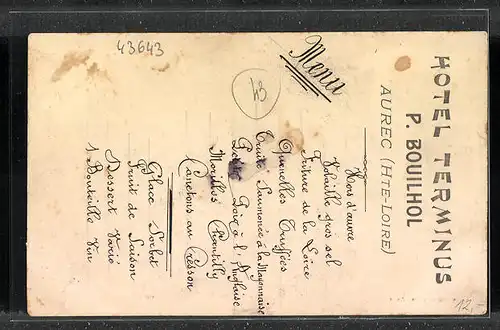 HOTEL TERMINUS
P. BOUILHOL
AUREC (HTE-LOIRE)
Menu
43
43643
Hors d'œuvre
Volaille gros sel
Friture de la Loire
Quenelles Truffées
Truite Saumonée à la Mayonnaise
Petits Pois à l'Anglaise
Morilles Chantilly
Canetons au Cresson
Glace Sorbet
Fruit de Saison
Dessert Varié
1 Bouteille Vin
12,-